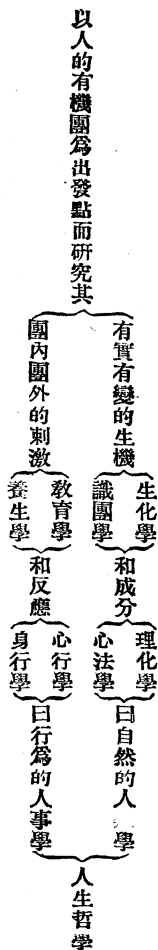 以人的有機團爲出發點而研究其
有實有變的生機
生化學
識團學
和成分
理化學
心法學
曰自然的人 學
團內團外的刺激
敎育學
養生學
和反應
心行學
身行學
曰行爲的人事學
人生哲學